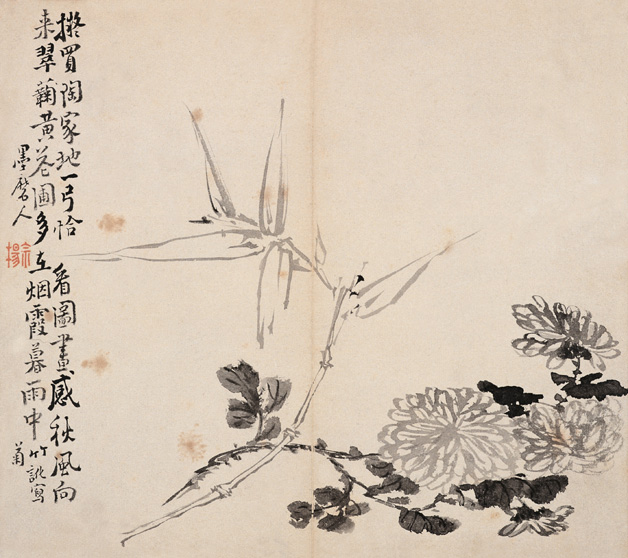 擬買陶家地一弓恰看圖畫感秋風向
来翠蘜黃花圃多在烟霞暮雨中竹寫
菊
墨磨人